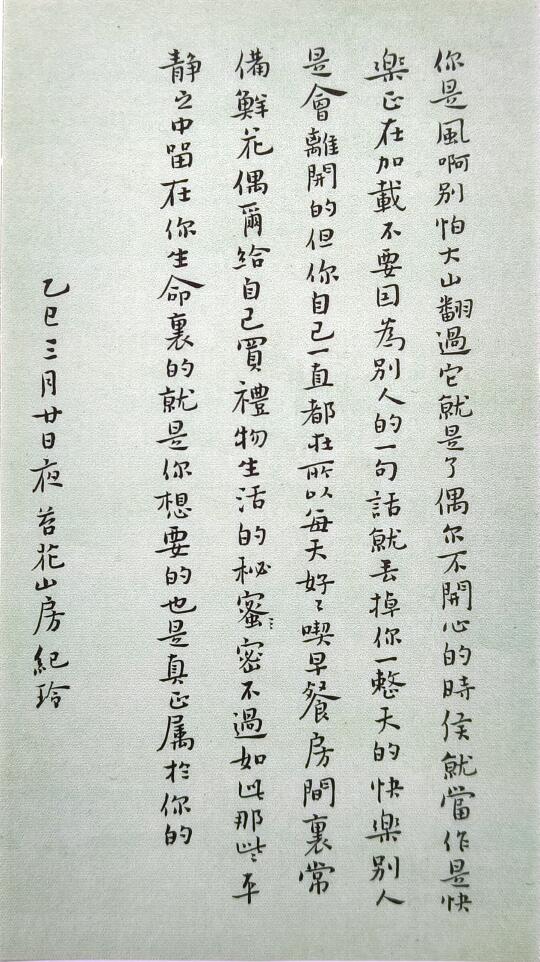 你是風啊别怕大山翻過它就是了偶尔不開心的時侯就當作是快
樂正在加載不要因為别人的一句話就丢掉你一整天的快樂别人
是會離開的但你自己一直都在所以每天好〻喫早餐房間裏常
備鮮花偶爾給自己買禮物生活的秘蜜密不過如此那些平
静之中留在你生命裏的就是你想要的也是真正属於你的
乙巳三月廿日夜苔花山房紀玲